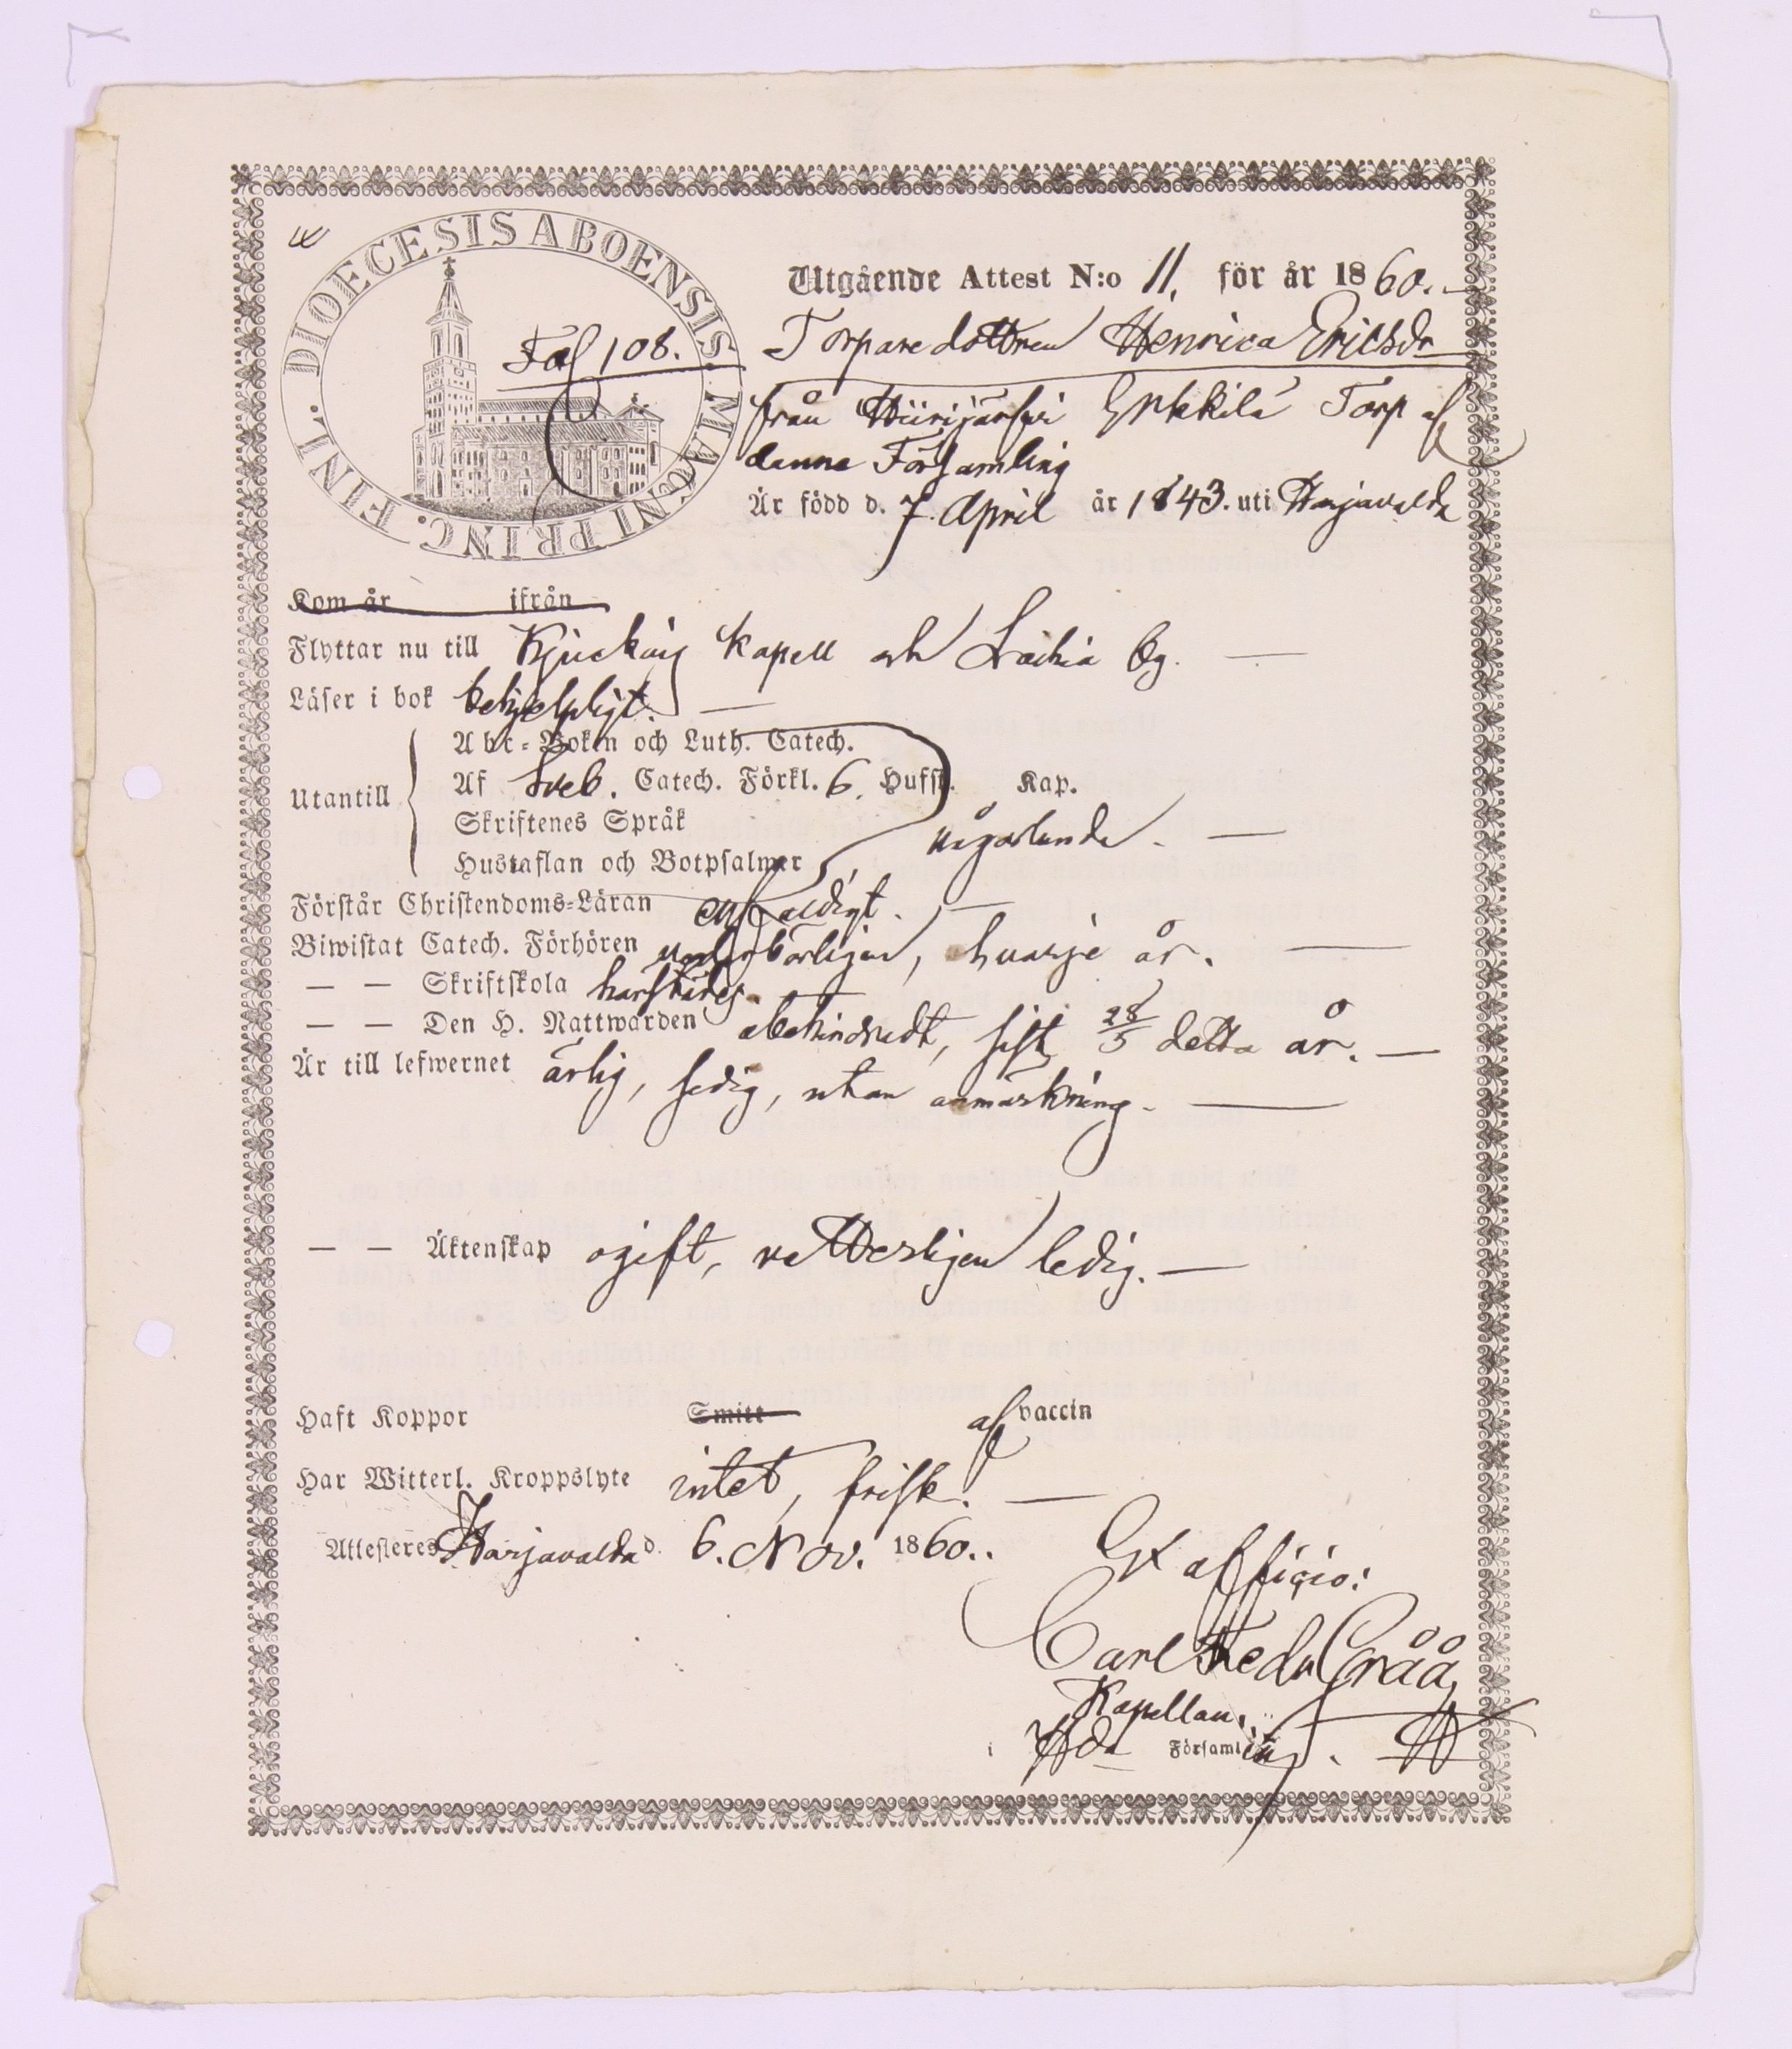 DIOECESIS ABOENSIS. MAGNI PRINC. FINL.
Fol 108.
Utgående Attest N:o 11. för år 1860.
Torparedottren Henrica Ericsdr
från Hiirijärfvi Erkkilä Torp af
denna Församling
Är född d. 7. April år 1843. uti Harjavalda
Kom år ifrån
Flyttar nu till Kjuckaig Kapell och By.
Läser i bok behjelpligt.
Utantill
Abc-Boken och Luth. Catech.
Af Sveb. Catech. Förkl. 6. Hufst. Kap.
Skriftenes Språk
någorlunda.
Hustaflan och Botpsalmer
Förstår Christendoms-Läran enfaldigt.
Biwistat Catech. Förhören vederbörligen, hvarje år.
— — Skriftskola härstädes.
— — Den H. Nattwarden obehindradt, sist 28/5 detta år.
Är till lefwernet ärlig, sedig, utan anmärkning.
— — Äktenskap ogift, vetterligen ledig.
Haft Koppor Smitt af vaccin
Har Witterl. Kroppslyte intet, frisk.
Attesteres Harjavalda d. 6. Nov. 1860.
Ex officio:
Carl Fredr Gråå,
Kapellan
i Hda Församling.